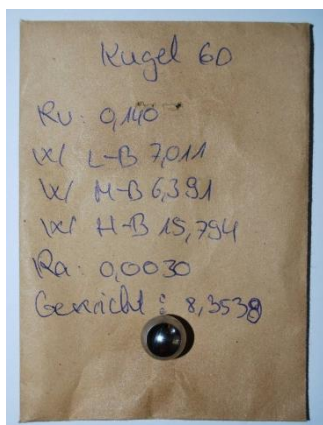 Kugel 60
Rv: 0,140
|x| L-B 7,011
|x| M-B 6,391
|x| H-B 15,794
Ra: 0,0030
Gewicht: 8,3538